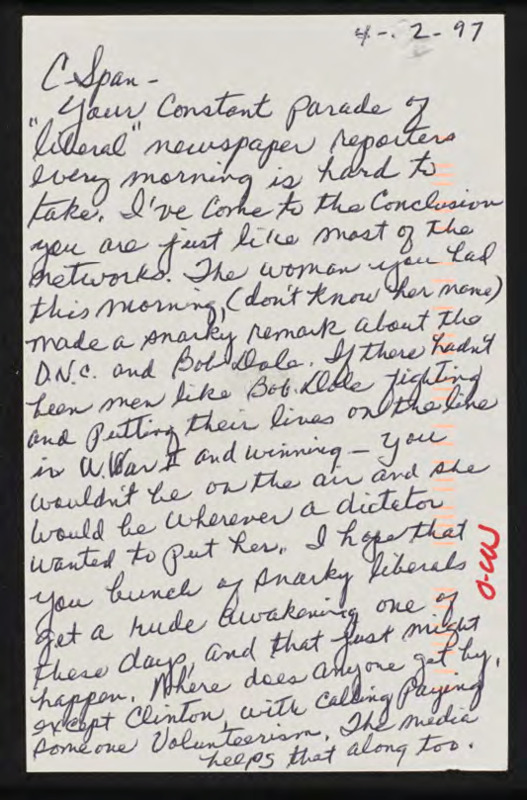 4-. 2-97
C-Span-
"Your Constant Parade of
liberal" newspaper reporters
every morning is hard to
take. I've come to the Conclusion
you are just like most of the
networks. The woman you had
this morning, (don't know her name)
made a snarky remark about the
D.N.C. and Bob Dole. If there hadn't
been men like Bob Dole fighting
and putting their lives on the line
in W. War II and winning - you
wouldn't be on the air and she
would be wherever a dictator
wanted to put her. I hope that
you bunch of snarky liberals
get a rude awakening one of
these days, and that just might
happen. Where does anyone get by,
except Clinton, with calling paying
someone Volunteerism. The media
helps that along too.